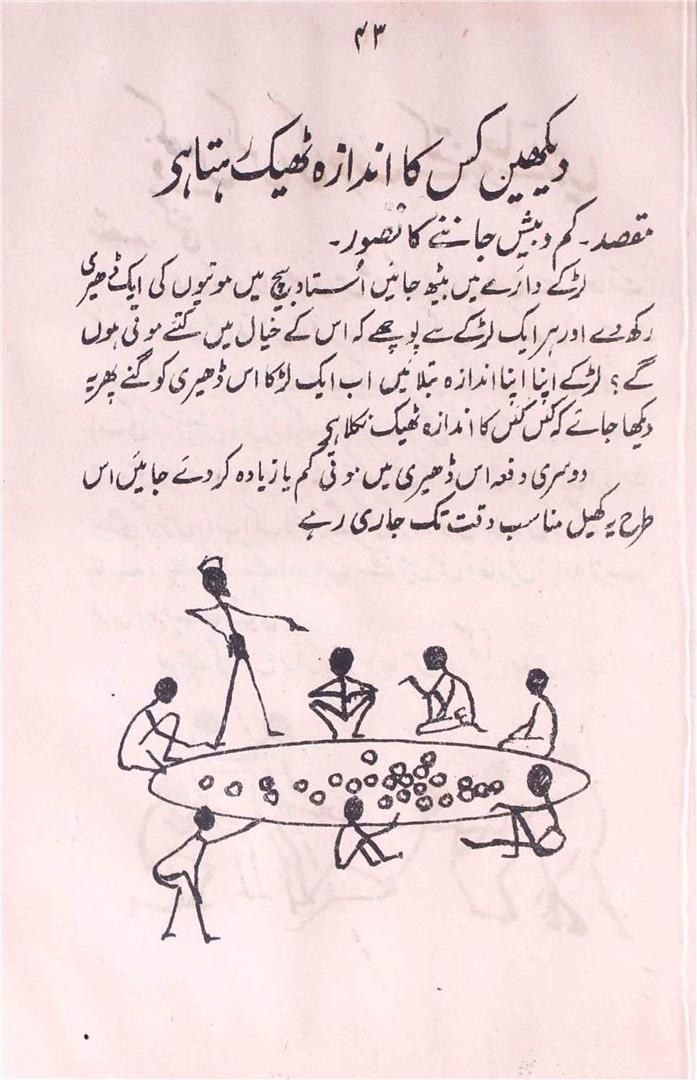 ۴۳
دیکھیں کس کا اندازہ ٹھیک رہتا ہی
مقصد۔ کم و بیش جاننے کا تصور۔
لڑکے دائرے میں بیٹھ جائیں اُستاد بیچ میں موتیوں کی ایک ڈھیری
رکھ دے اور ہر ایک لڑکے سے پوچھے کہ اس کے خیال میں کتنے موتی ہوں
گے؟ لڑکے اپنا اپنا اندازہ بتلائیں اب ایک لڑکا اس ڈھیری کو گنے پھر یہ
دیکھا جائے کہ کس کس کا اندازہ ٹھیک نکلا ہی
دوسری دفعہ اس ڈھیری میں موتی کم یا زیادہ کر دئے جائیں اس
طرح یہ کھیل مناسب وقت تک جاری رہے